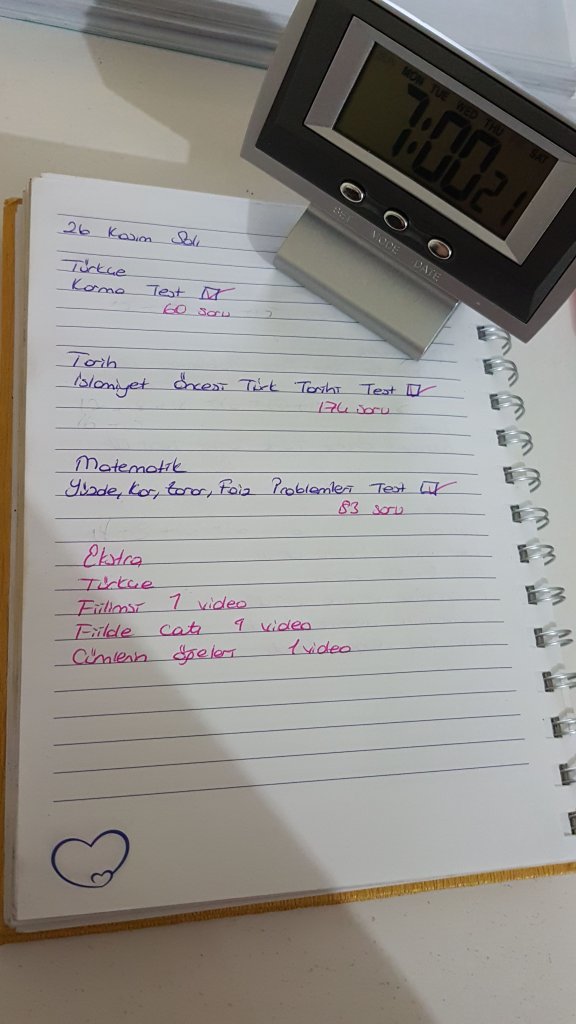 MON TUE WED THU SAT
7:00 21
SET MODE DATE
26 Kasım Salı
Türkçe
Karma Test
60 soru
Tarih
İslamiyet Öncesi Türk Tarihi Test
174 soru
Matematik
Yüzde, Kar, Zarar, Faiz Problemleri Test
83 soru
Ekstra
Türkçe
Fiilimsi 1 video
Fiilde çatı 1 video
Cümlenin öğeleri 1 video